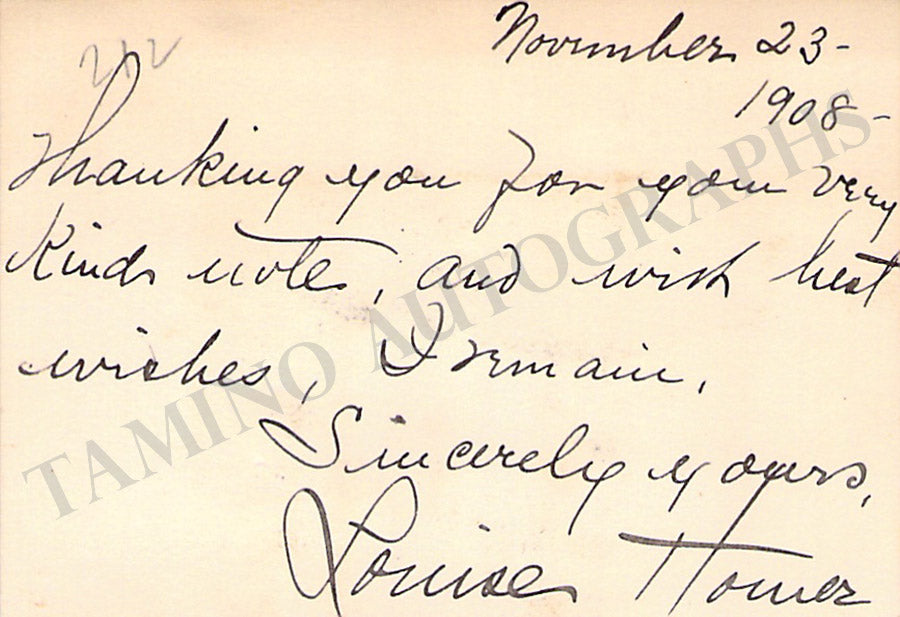 November 23-
1908-
Thanking you for your very
kind note, and with best
wishes, I remain,
Sincerely yours,
Louise Homer
TAMINO AUTOGRAPHS